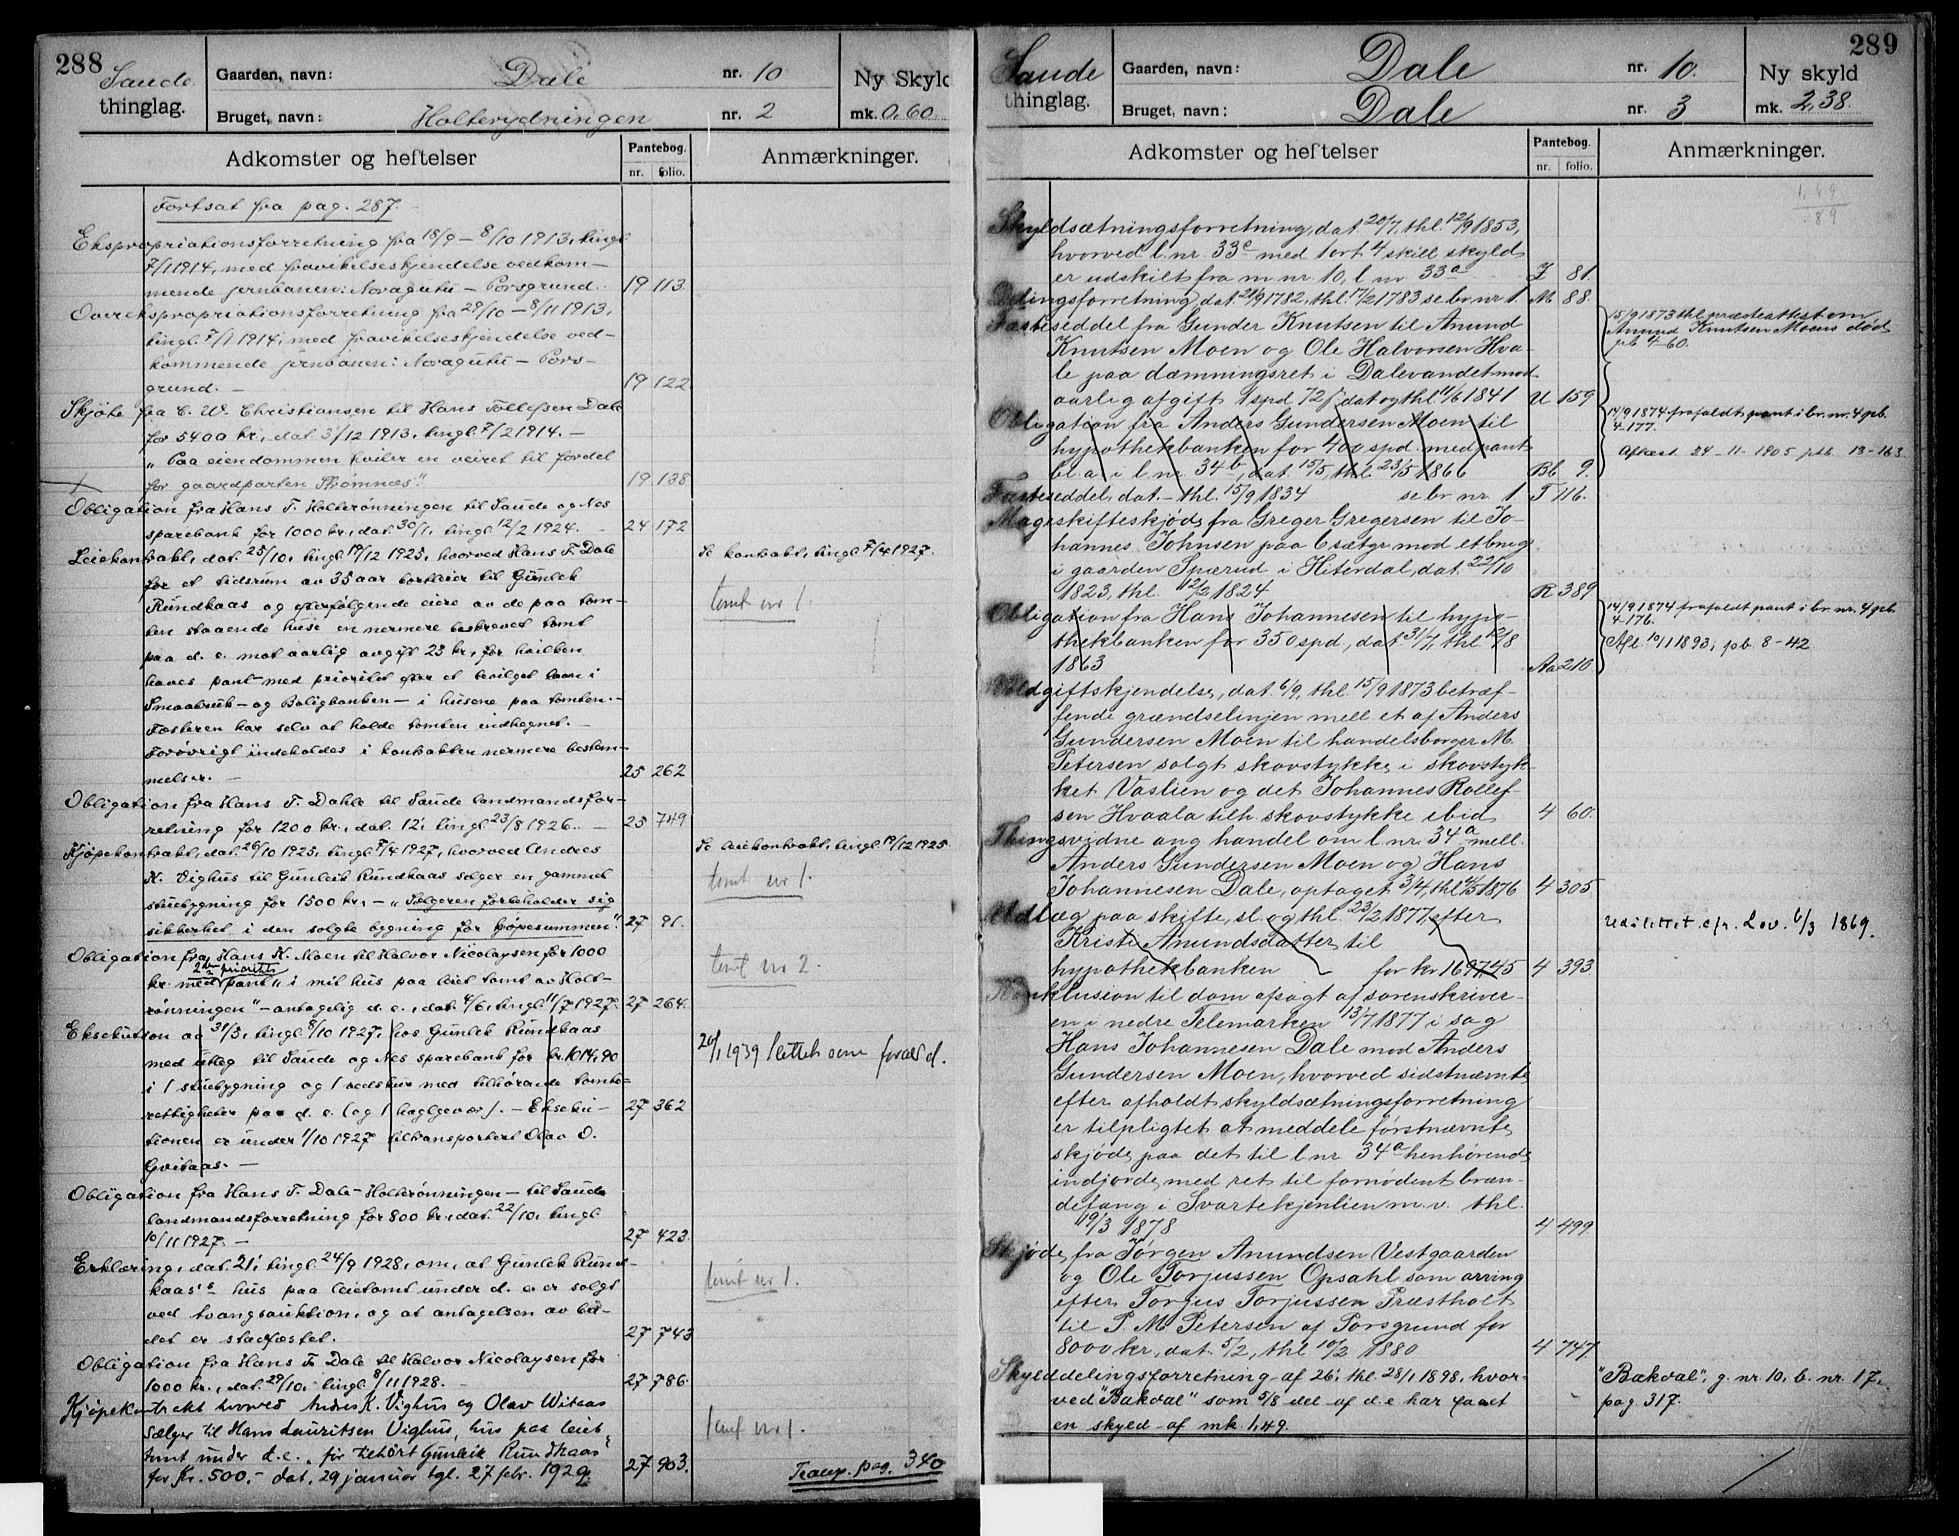 288
Saude
thinglag.
Gaarden, navn: Dale nr. 10
Bruget, navn: Holterydningen nr. 2
Ny Skyld
mk. 0,60
Adkomster og heftelser
Pantebog.
nr. folio.
Anmærkninger.
Fortsat fra pag. 287.
Ekspropriationsforretning fra 18/9 – 8/10 1913, tingl.
7/1 1914, med fravikelseskjendelse vedkom-
mende jernbanen: Noragutu – Porsgrund. 19 113
Overekspropriationsforretning fra 29/10 – 8/11 1913,
tingl. 7/1 1914, med fravikelseskjendelse ved-
kommende jernbanen: Noragutu – Pors-
grund. – 19 122
Skjøte fra C. W. Christiansen til Hans Tollefsen Dale
for 5400 kr., dat. 31/12 1913, tingl. 7/2 1914. –
" Paa eiendommen hviler en veiret til fordel
for gaardparten Strømnæs". 19 138
Obligation fra Hans T. Holterønningen til Saude og Nes
sparebank for 1000 kr., dat. 30/1, tingl. 12/2 1924. – 24 172
Leiekontrakt, dat. 25/10, tingl. 19/12 1925, hvorved Hans T. Dale
for et tidsrum av 35 aar bortleier til Gunlek
Rundkaas og efterfølgende eiere av de paa tom-
ten staaende huse en nermere beskrevet tomt
paa d. e. mot aarlig avgift 23 kr., for hvilken
haves pant med prioritet efter et bevilget laan i
Smaabruk- og Boligbanken – i husene paa tomten. –
Festeren har selv at holde tomten indhegnet. –
Forøvrigt indeholdes i kontrakten nermere bestem-
melser. – 25 262
Se kontrakt, tingl. 7/4 1927.
tomt nr 1.
Obligation fra Hans T. Dahle til Saude landmandsfor-
retning for 1200 kr., dat. 12', tingl. 23/8 1926. – 25 749
Kjøpekontrakt, dat. 26/10 1925, tingl. 7/4 1927, hvorved Anders
K. Vighus til Gunleik Rundkaas selger en gammel
stuebygning for 1500 kr. – "Selgeren forbeholder sig
sikkerhet i den solgte bygning for kjøpesummen". 27 91.
Se leiekontrakt, tingl. 19/12 1925
tomt nr 1.
Obligation fra Hans K. Moen til Halvor Nicolaysen for 1000
kr. med 2den prioritets pant "i mit hus paa leiet tomt av Holt-
rønningen" – antagelig d. e., dat. 4/6, tingl. 11/7 1927. 27 264.
tomt nr 2.
Eksekution av 31/5, tingl. 8/10 1927, hos Gunlek Rundkaas
med utleg til Saude og Nes sparebank for kr. 1014,90
i 1 stuebygning og 1 vedskur med tilhørende tomte-
rettigheter paa d. e. (og 1 haglgevær). – Ekseku- 27 362
tionen er under 1/10 1927 tiltransportert Olav O.
Gvitaas. –
20/1 1939 slettet som foræld.
Obligation fra Hans T. Dale – Holterønningen – til Saude
landmandsforretning for 800 kr., dat. 22/10, tingl.
10/11 1927. – 27 423.
Erklæring, dat. 21', tingl. 24/9 1928, om, at Gunlek Rund-
kaas's hus paa leietomt under d. e. er solgt
ved tvangsauktion, og at antagelsen av bu-
det er stadfæstet. 27 743
tomt nr 1.
Obligation fra Hans T. Dale til Halvor Nicolaysen for
1000 kr., dat. 29/10, tingl. 8/11 1928. 27 786.
Kjøpekontrakt hvorved Anders K. Vighus og Olav Witaas
sælger til Hans Lauritsen Vighus, hus paa leiet
tomt under d.e., før tilhørt Gunleik Rundkaas"
for kr. 500,- dat. 29 januar tgl. 27 febr. 1929. 27 903.
tomt nr 1.
Transp. pag. 340
289
Saude
thinglag.
Gaarden, navn: Dale nr. 10.
Bruget, navn: Dale nr. 3
Ny skyld
mk. 2,38.
Adkomster og heftelser
Pantebog.
nr. folio.
Anmærkninger.
1,49
89
Skyldsætningsforretning, dat. 20/7, thl. 12/9 1853,
hvorved l. nr. 33c med 1 ort 4 skill skyld
er udskilt fra m. nr. 10, l. nr. 33a J 81.
Delingsforretning, dat. 21/9 1782, thl. 17/2 1783 se br. nr 1. M 88.
Fæsteseddel fra Gunder Knutsen til Anund
Knutsen Moen og Ole Halvorsen Hva-
le paa dæmningsret i Dalevandet mod
aarlig afgift 1 spd 72 s dat og thl. 11/6 1841 U 159
15/9 1873 thl. præsteattest om
Anund Knutsen Moens død
pb 4-60.
Obligation fra Anders Gundersen Moen til
hypothekbanken for 400 spd. med pant
bl. a. i l. nr. 34b, dat. 15/5, thl. 23/5 1866 Bb 9.
14/9 1874 frafaldt pant i br. nr. 4 pb.
4-177.
Aflæst 24-11-1905 pb. 13-163
Fæsteseddel, dat. – thl. 15/9 1834 se br. nr. 1. T 116.
Mageskifteskjøde fra Greger Gregersen til Jo-
hannes Johnsen paa 1 sæter mod et brug
i gaarden Spærud i Hiterdal, dat. 22/10
1823, thl. 12/2 1824 R 389
Obligation fra Hans Johannesen til hypo-
thekbanken for 350 spd, dat. 31/7, thl. 12/8
1863 Aa 210.
14/9 1874 frafaldt pant i br. nr. 4 pb.
4-176.
Afl. 10/1 1893, pb. 8-42
Voldgiftskjendelse, dat. 6/9, thl. 15/9 1873 betræf-
fende grændselinjen mell. et af Anders
Gundersen Moen til handelsborger M.
Petersen solgt skovstykke i skovstyk-
ket Vaslien og det Johannes Rollef-
sen Hvaala tilh. skovstykke ibid. 4 60.
Thingsvidne ang. handel om l. nr. 34a mell.
Anders Gundersen Moen og Hans
Johannesen Dale, optaget 3/4, thl. 4/5 1876 4 305
Udlæg paa skifte, sl. og thl. 23/2 1877, efter
Kristi Anundsdatter til
hypothekbanken for kr 1697,45 4 393
Udslettet efr. Lov. 6/3 1869.
Konklusion til dom afsagt af sorenskriver-
en i nedre Telemarken 13/7 1877 i sag
Hans Johannesen Dale mod Anders
Gundersen Moen, hvorved sidstnævnte
efter afholdt skyldsætningsforretning
er tilpligtet at meddele førstnævnte
skjøde paa det til l. nr 34a henhørende
indjorde med ret til fornødent bræn-
defang i Svartekjenlien m. v. thl.
19/3 1878 4 499.
Skjøde fra Jørgen Anundsen Vestgaarden
og Ole Torjussen Opsahl som arving
efter Torjus Torjussen Præstholt
til P. M. Petersen af Porsgrund for
8000 kr, dat. 5/2, thl. 10/2 1880 4 747.
Skylddelingsforretning af 26', thl. 28/1 1898, hvor-
ved "Bakval" som 5/8 del af d. e. har faaet
en skyld af mk. 1,49.
"Bakval", g. nr. 10, b. nr. 17.
pag. 317.